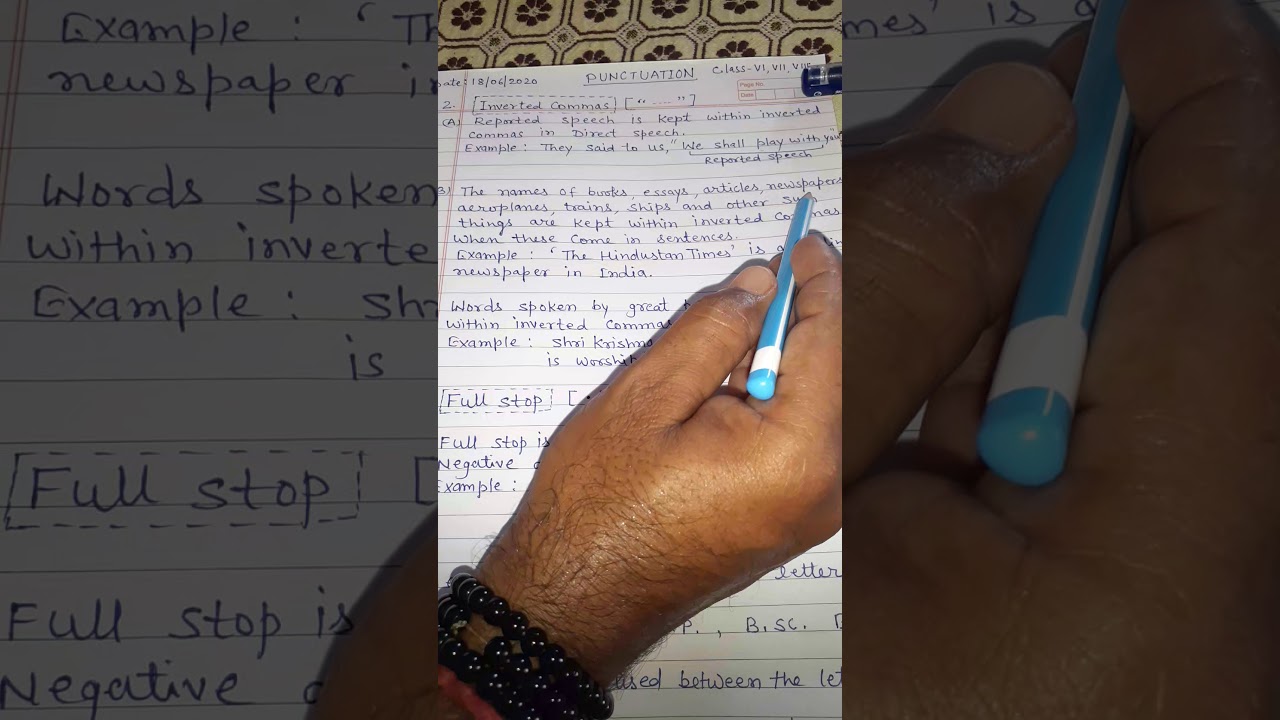 Date: 18/06/2020 PUNCTUATION Class-VI, VII, VIII
Page No.
Date
2. Inverted Commas [“ ---- ”]
(A) Reported speech is kept within inverted
commas in Direct speech.
Example : They said to us, “We shall play with you”
Reported speech
B) The names of books, essays, articles, newspapers
aeroplanes, trains, ships and other
things are kept within inverted commas
when these come in sentences.
Example : ‘The Hindustan Times’ is a
newspaper in India.
Words spoken by great
within inverted commas
Example : Shri Krishna
is
Full stop [
Full stop is
Negative
Example :
letter
P., B.Sc.
used between the